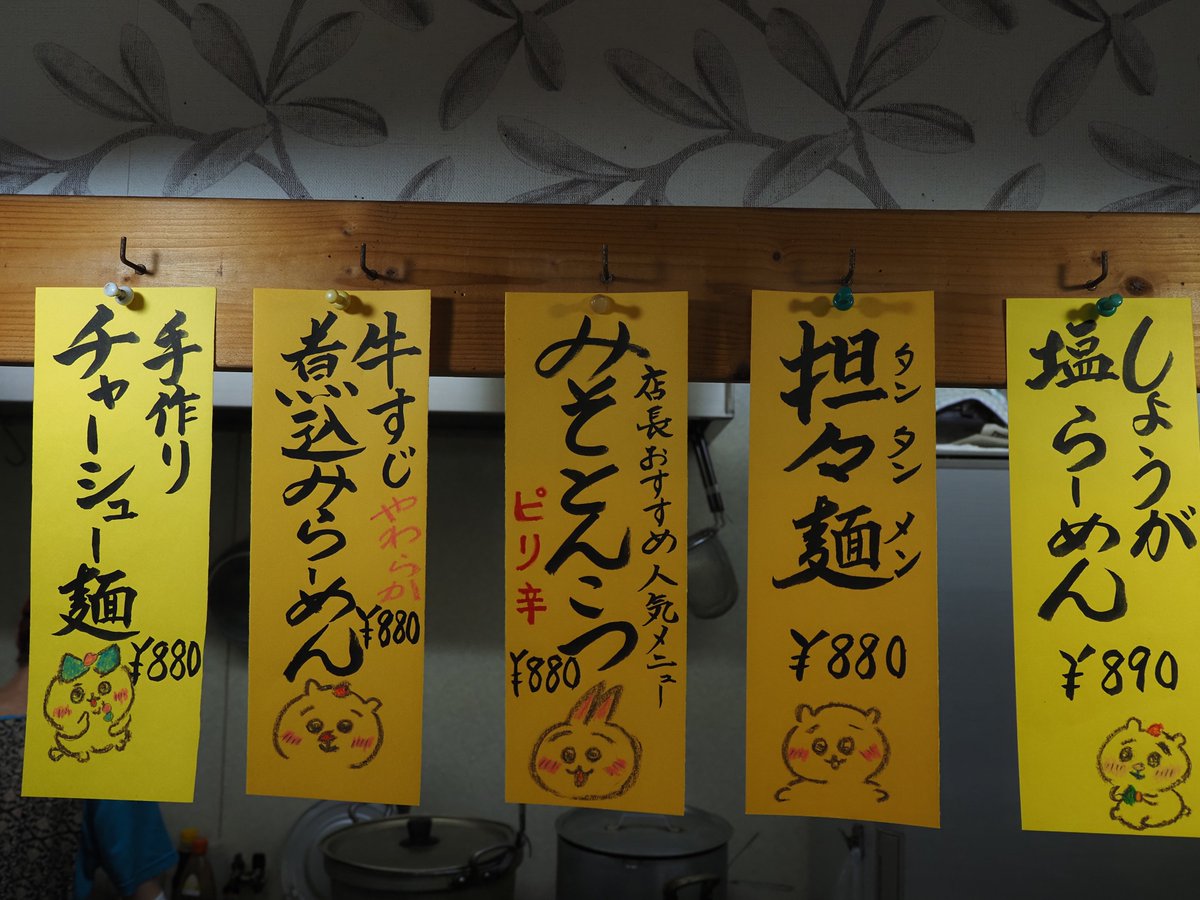 手作り
チャーシュー麺
¥880
牛すじ
やわらか
煮込みらーめん
¥880
店長おすすめ人気メニュー
みそとんこつ
ピリ辛
¥880
タンタンメン
担々麺
¥880
しょうが
塩らーめん
¥890